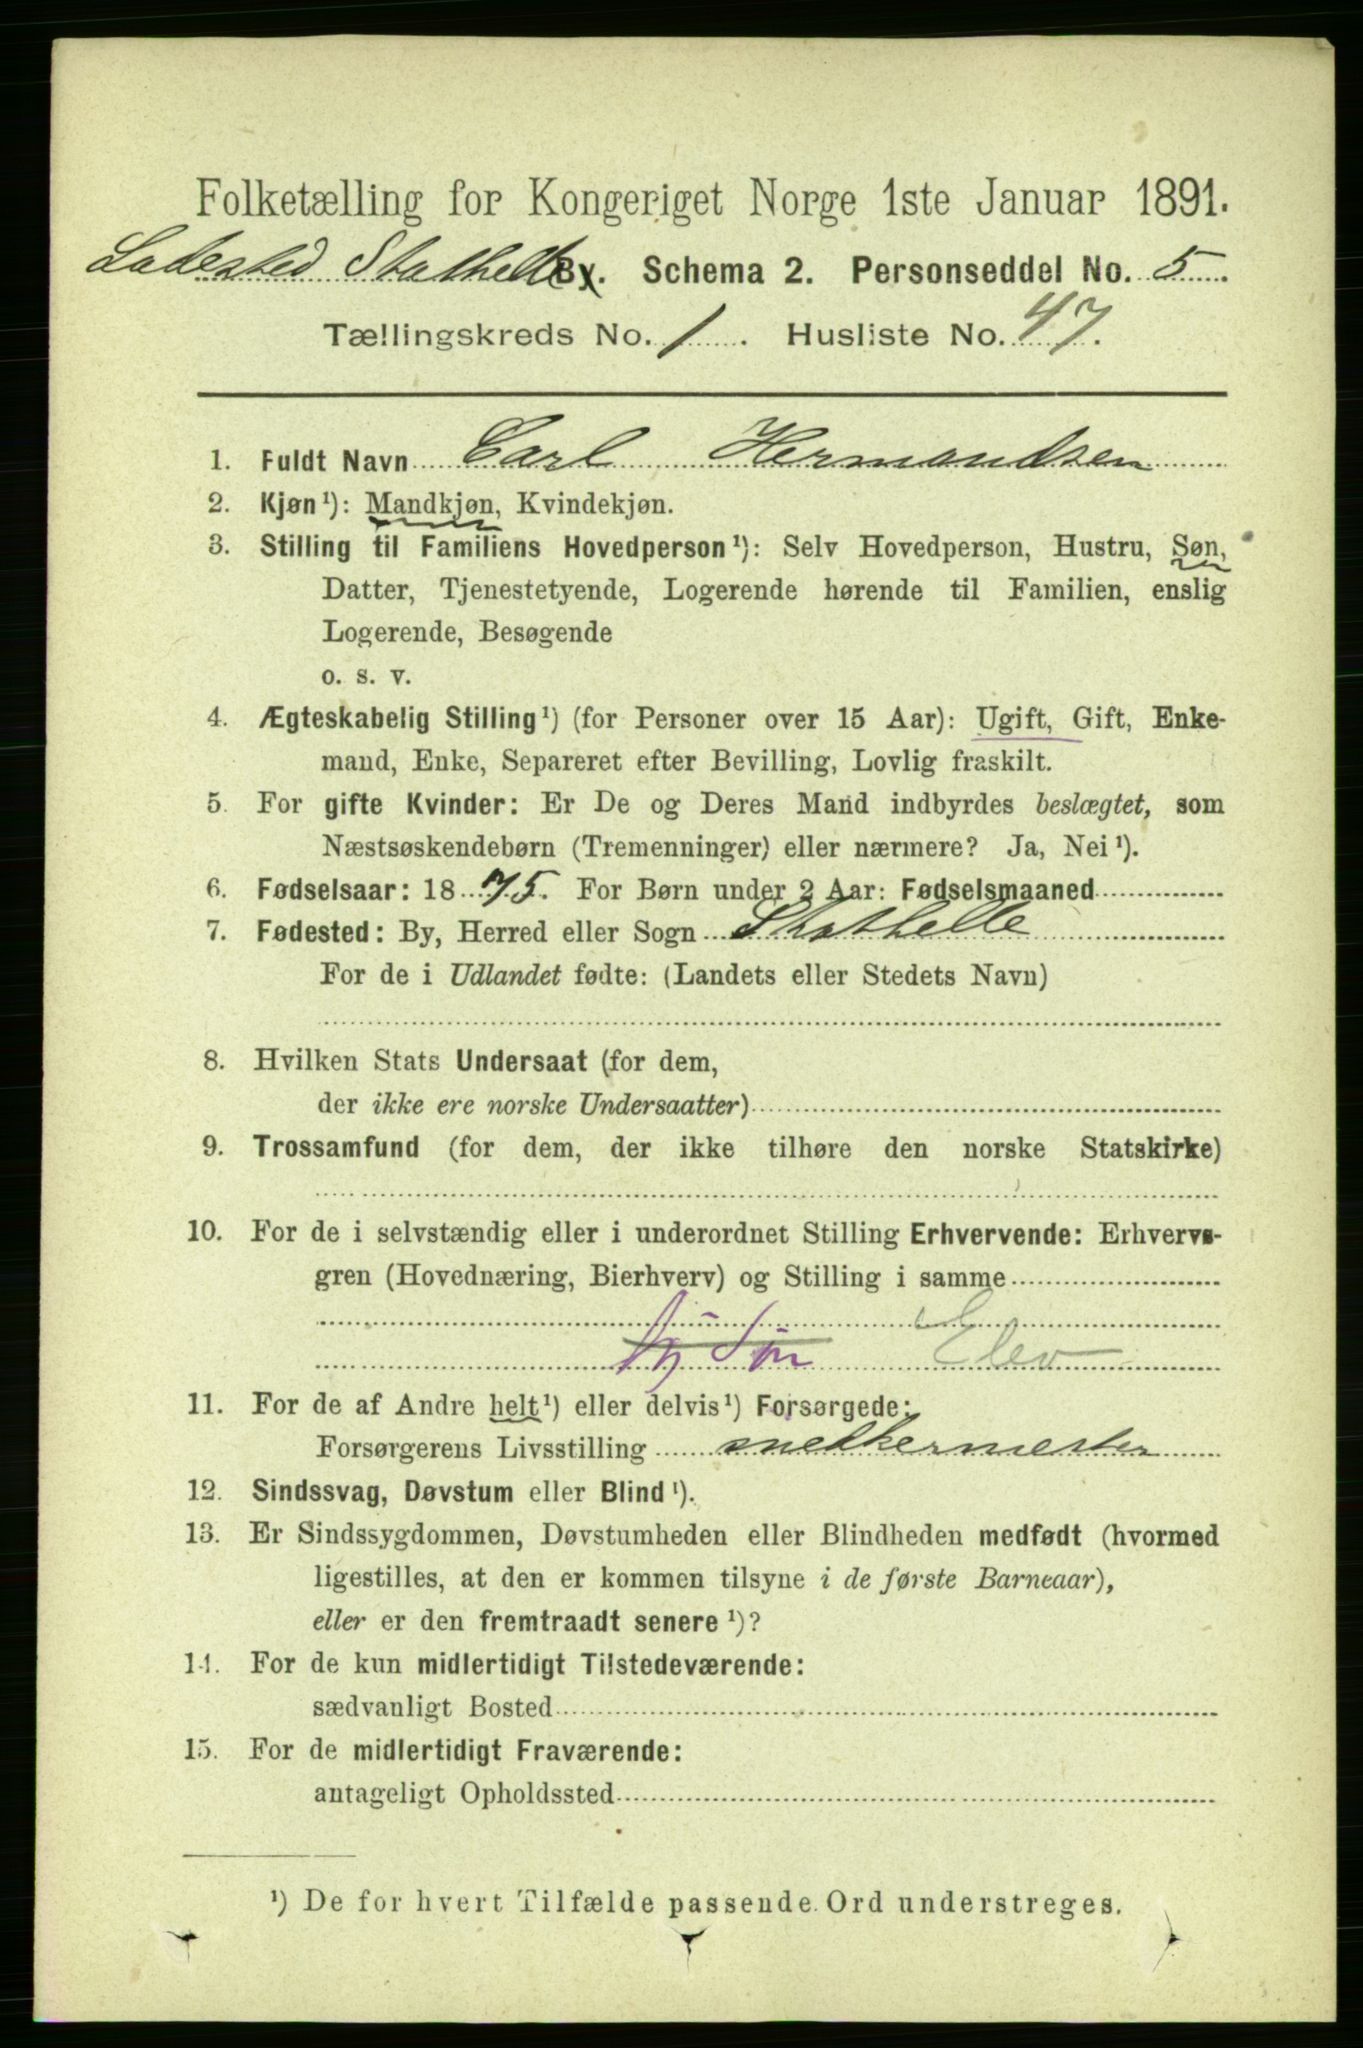 Folketælling for Kongeriget Norge 1ste Januar 1891.
Ladested Stathelle By. Schema 2. Personseddel No. 5.
Tællingskreds No. 1. Husliste No. 47.
1. Fuldt Navn Carl Hermandsen
2. Kjøn ¹): Mandkjøn, Kvindekjøn.
3. Stilling til Familiens Hovedperson ¹): Selv Hovedperson, Hustru, Søn,
Datter, Tjenestetyende, Logerende hørende til Familien, enslig
Logerende, Besøgende
o. s. v.
4. Ægteskabelig Stilling ¹) (for Personer over 15 Aar): Ugift, Gift, Enke-
mand, Enke, Separeret efter Bevilling, Lovlig fraskilt.
5. For gifte Kvinder: Er De og Deres Mand indbyrdes beslægtet, som
Næstsøskendebørn (Tremenninger) eller nærmere? Ja, Nei ¹).
6. Fødselsaar: 1875. For Børn under 2 Aar: Fødselsmaaned
7. Fødested: By, Herred eller Sogn Stathelle
For de i Udlandet fødte: (Landets eller Stedets Navn)
8. Hvilken Stats Undersaat (for dem,
der ikke ere norske Undersaatter)
9. Trossamfund (for dem, der ikke tilhøre den norske Statskirke)
10. For de i selvstændig eller i underordnet Stilling Erhvervende: Erhvervs-
gren (Hovednæring, Bierhverv) og Stilling i samme
Søn Elev
11. For de af Andre helt ¹) eller delvis ¹) Forsørgede:
Forsørgerens Livsstilling snedkermester
12. Sindssvag, Døvstum eller Blind ¹).
13. Er Sindssygdommen, Døvstumheden eller Blindheden medfødt (hvormed
ligestilles, at den er kommen tilsyne i de første Barneaar),
eller er den fremtraadt senere ¹)?
14. For de kun midlertidigt Tilstedeværende:
sædvanligt Bosted
15. For de midlertidigt Fraværende:
antageligt Opholdssted
¹) De for hvert Tilfælde passende Ord understreges.